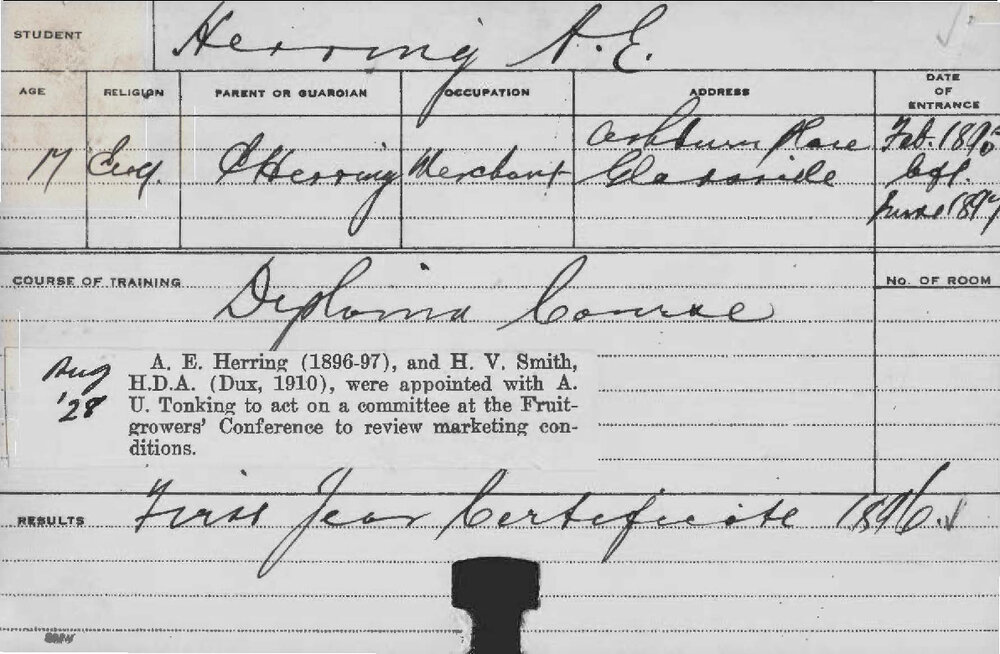 STUDENT Herring A. E.
AGE RELIGION PARENT OR GUARDIAN OCCUPATION ADDRESS DATE OF ENTRANCE
17 C Herring Merchant Ashburn Place Feb. 189
Gladesville left
June 1897
COURSE OF TRAINING Diploma Course No. OF ROOM
Aug '28
A. E. Herring (1896-97), and H. V. Smith,
H.D.A. (Dux, 1910), were appointed with A.
U. Tonking to act on a committee at the Fruit-
growers' Conference to review marketing con-
ditions.
RESULTS First Year Certificate 1896.